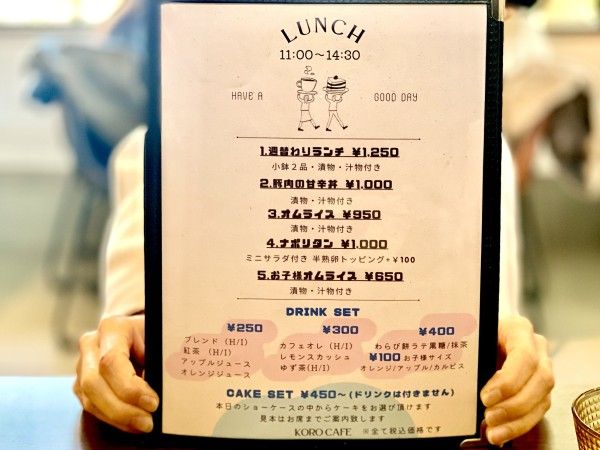 LUNCH
11:00〜14:30
HAVE A GOOD DAY
1.週替わりランチ ¥1,250
小鉢2品・漬物・汁物付き
2.豚肉の甘辛丼 ¥1,000
漬物・汁物付き
3.オムライス ¥950
漬物・汁物付き
4.ナポリタン ¥1,000
ミニサラダ付き 半熟卵トッピング+¥100
5.お子様オムライス ¥650
漬物・汁物付き
DRINK SET
¥250
ブレンド (H/I)
紅茶 (H/I)
アップルジュース
オレンジジュース
¥300
カフェオレ (H/I)
レモンスカッシュ
ゆず茶(H/I)
¥400
わらび餅ラテ黒糖/抹茶
¥100 お子様サイズ
オレンジ/アップル/カルピス
CAKE SET ¥450〜(ドリンクは付きません)
本日のショーケースの中からケーキをお選び頂けます
見本はお席までご案内致します
KORO CAFE ※全て税込価格です